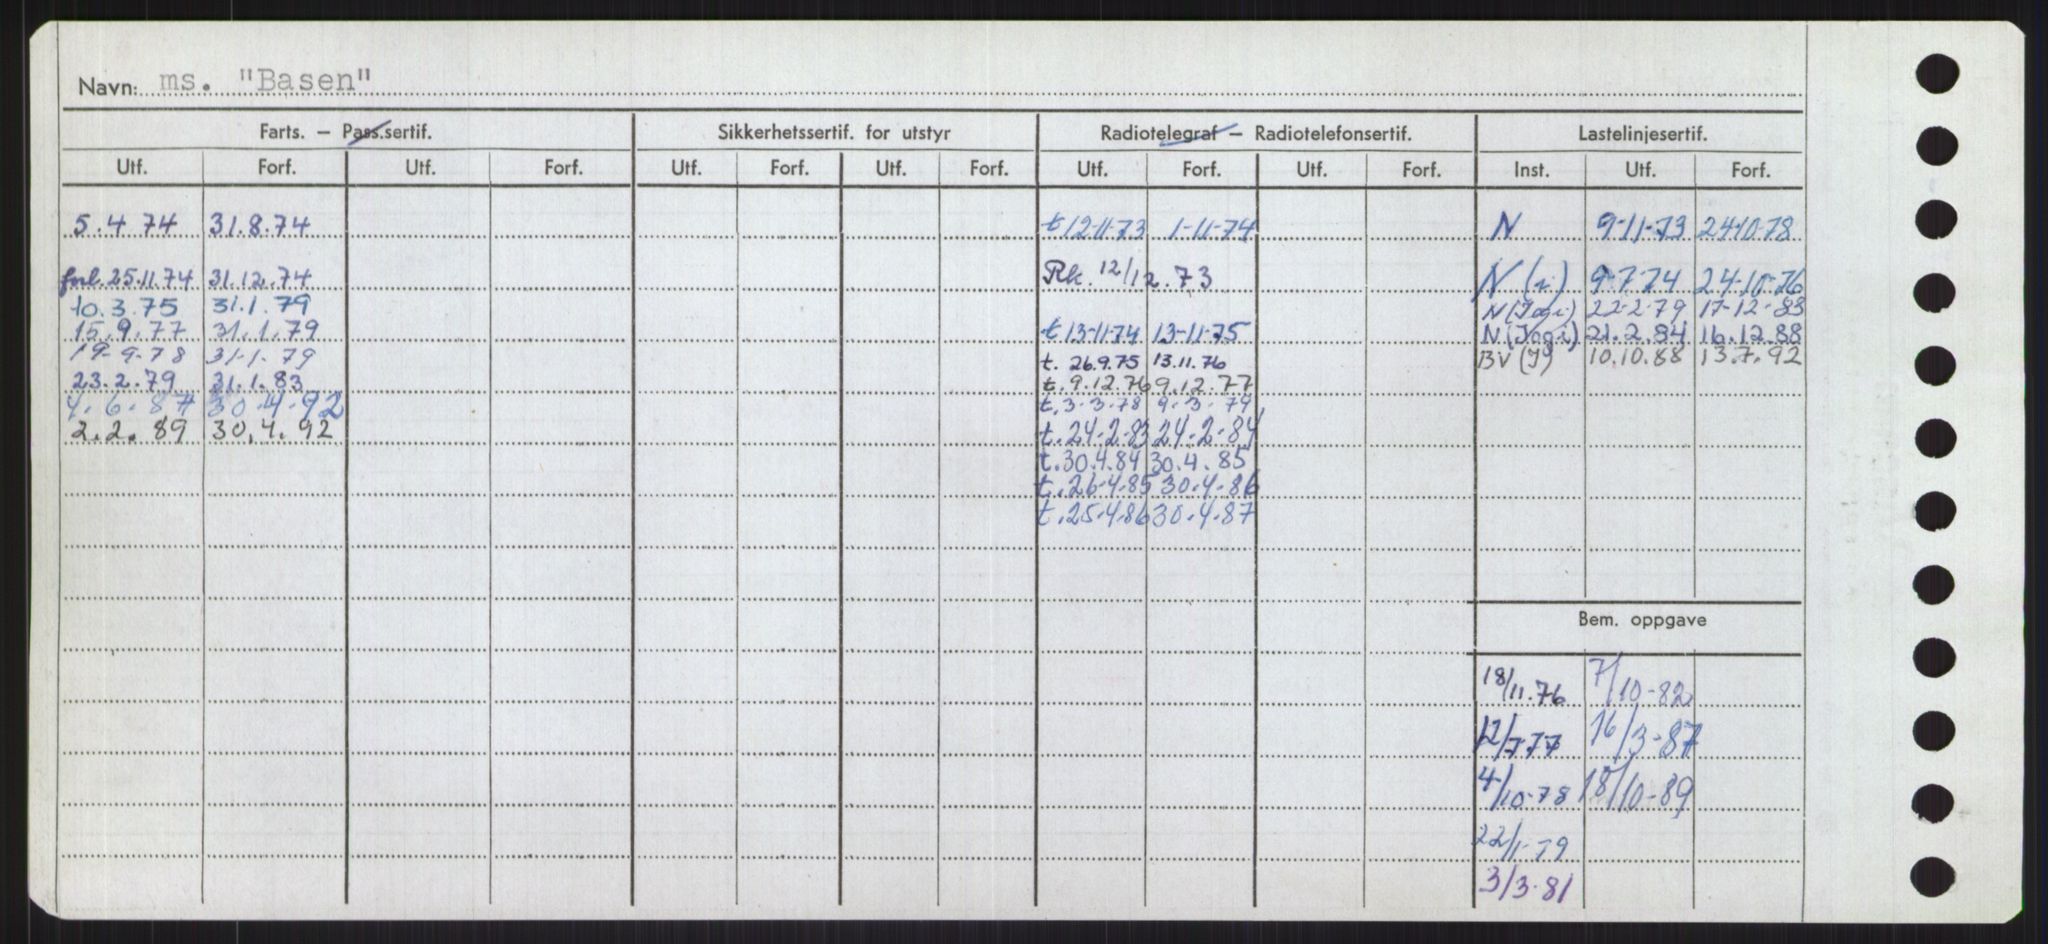 Navn: ms. "Basen"
Farts. — Pass.sertif. Sikkerhetssertif. for utstyr Radiotelegraf — Radiotelefonsertif. Lastelinjesertif.
Utf. Forf. Utf. Forf. Utf. Forf. Utf. Forf. Utf. Forf. Utf. Forf. Inst. Utf. Forf.
5.4 74 31.8.74 t 12-11-73 1-11-74 N 9-11-73 24-10-78
forl. 25.11.74 31.12.74 Rk. 12/12.73 N (i) 9-7-74 24-10-76
10.3.75 31.1.79 N (Jogi) 22-2-79 17-12-83
15.9.77 31.1.79 t 13-11-74 13-11-75 N (Jogi) 21.2.84 16.12.88
19-9-78 31-1-79 t. 26.9.75 13.11.76 BV (J) 10.10.88 13.7.92
23.2.79 31.1.83 t. 9.12.76 9.12.77
4.6.87 30.4.92 t. 3-3-78 9-3-79
2.2.89 30.4.92 t. 24-2-83 24-2-84
t. 30.4.84 30.4.85
t. 26-4-85 30-4-86
t. 25-4-86 30-4-87
Bem. oppgave
18/11.76 7/10-82
12/7-77 16/3-87
4/10-78 18/10-89
22/1-79
3/3-81